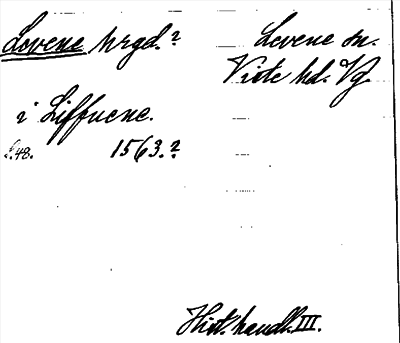 Levene hrgd.?
Levene sn.
Viste hd. Vg.
i Liffuene.
s. 48. 1563.?
Hist. handl. III.